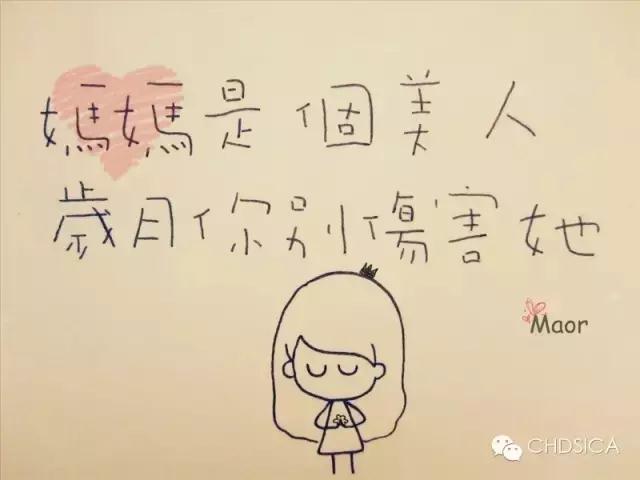 媽媽是個美人
歲月你別傷害她
Maor
CHDSICA